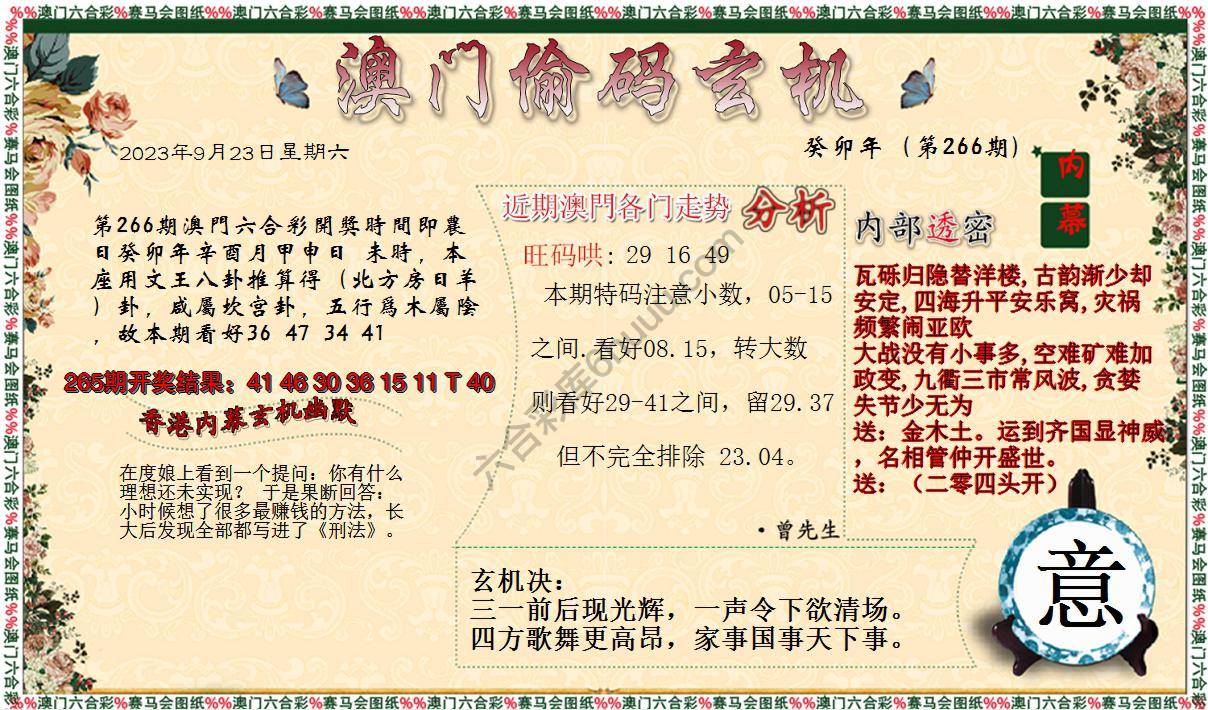 %%澳门六合彩%赛马会图纸%%澳门六合彩%赛马会图纸%%澳门六合彩%赛马会图纸%%澳门六合彩%赛马会图纸%%澳门六合彩%赛马会图纸%%澳门六合彩%赛马会图纸%%
澳门偷码玄机
2023年9月23日星期六
癸卯年（第266期）
内幕
第266期澳門六合彩開獎時間即農
日癸卯年辛酉月甲申日 未時，本
座用文王八卦推算得（北方房日羊
）卦，咸屬坎宫卦，五行爲木屬陰
，故本期看好36 47 34 41
265期开奖结果：41 46 30 36 15 11 T 40
香港内幕玄机幽默
在度娘上看到一个提问：你有什么
理想还未实现？ 于是果断回答：
小时候想了很多最赚钱的方法，长
大后发现全部都写进了《刑法》。
近期澳門各门走势 分析
旺码哄: 29 16 49
本期特码注意小数，05-15
之间.看好08.15，转大数
则看好29-41之间，留29.37
但不完全排除 23.04。
·曾先生
内部透密
瓦砾归隐替洋楼,古韵渐少却
安定,四海升平安乐窝,灾祸
频繁闹亚欧
大战没有小事多,空难矿难加
政变,九衢三市常风波,贪婪
失节少无为
送：金木土。运到齐国显神威
，名相管仲开盛世。
送：（二零四头开）
玄机决：
三一前后现光辉，一声令下欲清场。
四方歌舞更高昂，家事国事天下事。
意
%%澳门六合彩%赛马会图纸%%澳门六合彩%赛马会图纸%%澳门六合彩%赛马会图纸%%澳门六合彩%赛马会图纸%%澳门六合彩%赛马会图纸%%澳门六合彩%赛马会图纸%%